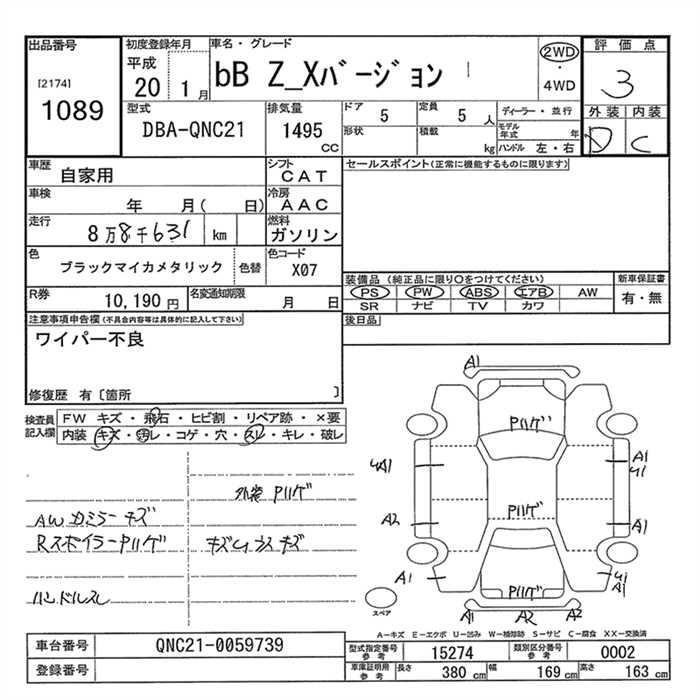 出品番号
[2174]
1089
初度登録年月
平成
20 1月
車名・グレード
bB Z_Xバージョン
2WD
・
4WD
評価点
3
外装 内装
D C
型式
DBA-QNC21
排気量
1495
CC
ドア 5
定員 5 人
ディーラー・並行
形状
積載 kg
モデル年式 年
ハンドル 左・右
車歴
自家用
シフト
CAT
車検
年 月( 日)
冷房
AAC
走行
8万8千631 km
燃料
ガソリン
色
ブラックマイカメタリック
色替
色コード
X07
R券
10,190 円
名変通知期限
月 日
セールスポイント(正常に機能するものに限ります)
装備品 (純正品に限り○をつけてください)
PS PW ABS エアB AW
SR ナビ TV カワ
新車保証書
有・無
後日品
注意事項申告欄(不具合内容等は具体的に記入して下さい)
ワイパー不良
修復歴 有〔箇所 〕
検査員記入欄
FW キズ・飛石・ヒビ割・リペア跡・×要
内装 キズ・汚レ・コゲ・穴・スレ・キレ・破レ
外装 Pハゲ
AW カミラー キズ
Rスポイラー Pハゲ
ハンドルスレ
A1
Pハゲ
A1
A1
A2
Pハゲ
A1
A1
Pハゲ
A1
A1
A2
A2
スペア
A－キズ E－エクボ U－凹み W－補修跡 S－サビ C－腐食 XX－交換済
車台番号
QNC21-0059739
登録番号
型式指定番号
参考
15274
類別区分番号
参考
0002
車庫証明用
参考
長さ 380 cm
幅 169 cm
高さ 163 cm